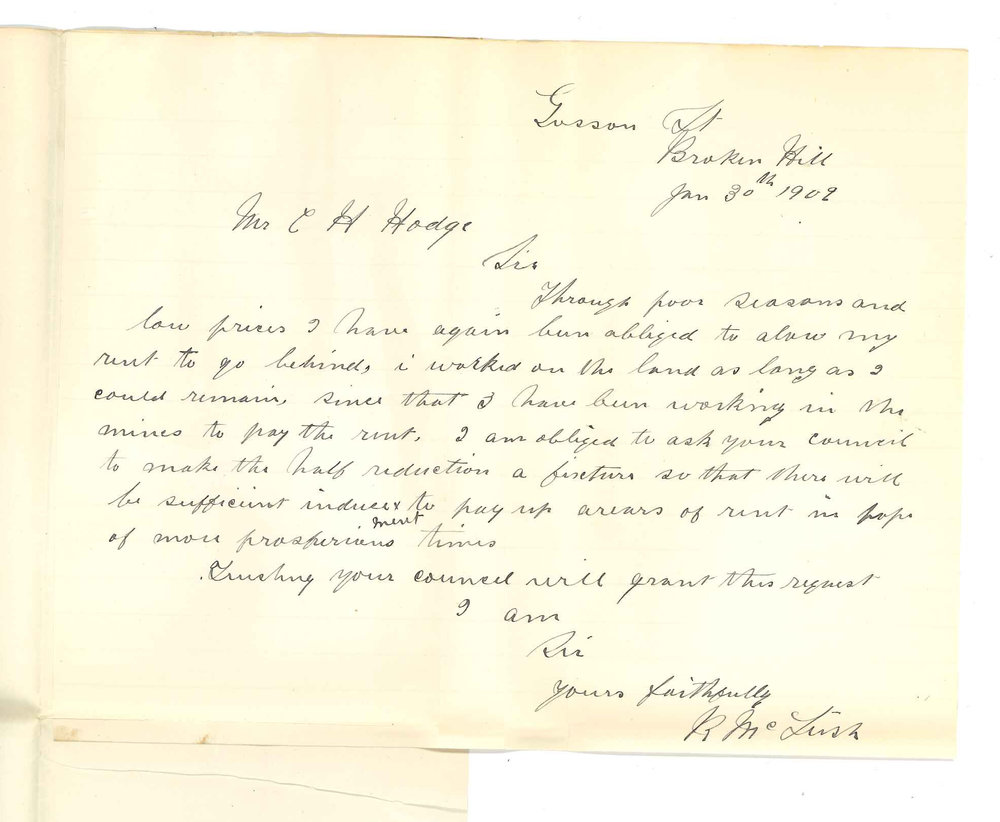 Gosson St
Broken Hill
Jan 30th 1902
Mr C H Hodge
Sir
Through poor seasons and
low prices I have again been obliged to alow my
rent to go behind, i worked on the land as long as I
could remain, since that I have been working in the
mines to pay the rent. I am obliged to ask your council
to make the half reduction a fixture so that there will
be sufficient induce x to pay up arears of rent in hope
ment
of more prosperious times
Trusting your council will grant this request
I am
Sir
yours faithfully
R Mc